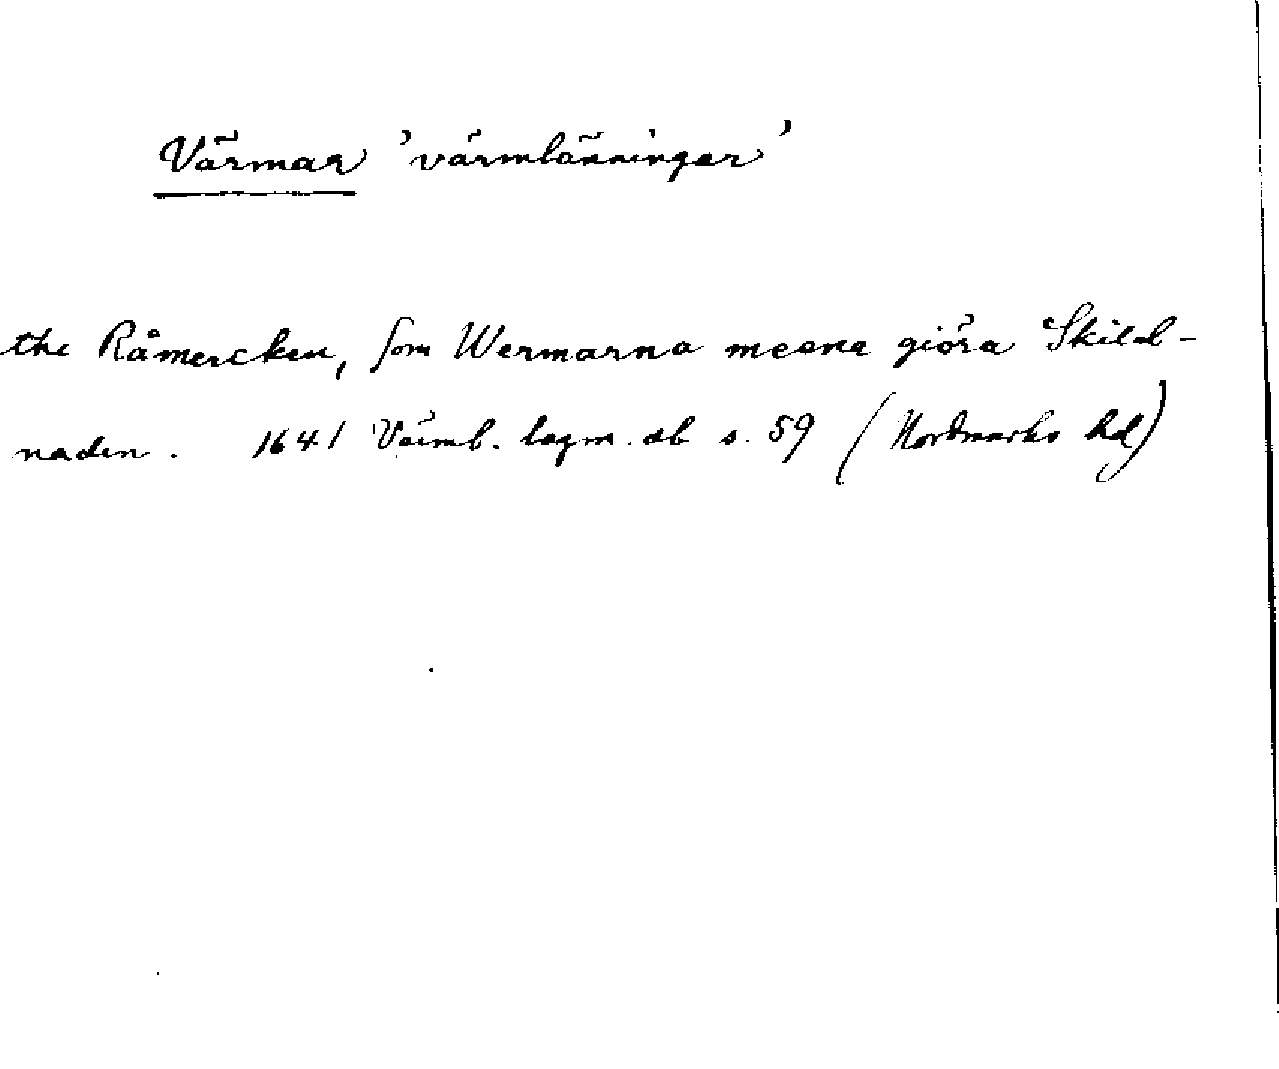 Värmar 'värmlänningar'
the Råmercken, som Wermarna meena giöra Skild-
naden. 1641 Värml. lagm. db s. 59 (Nordmarks hd)